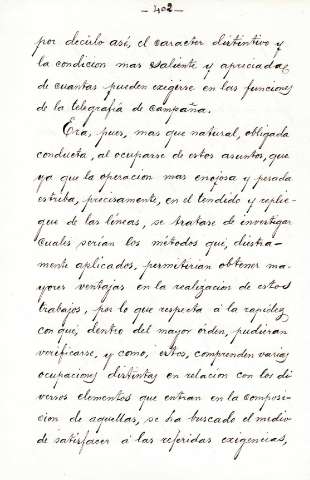 - 402 -
por decirlo así, el caracter distintivo y
la condicion mas saliente y apreciada
de cuantas pueden exigirse en las funciones
de la telegrafía de Campaña.
Era, pues, mas que natural, obligada
conducta, al ocuparse de estos asuntos, que
ya que la operacion mas enojosa y pesada
estriba, precisamente, en el tendido y replie-
gue de las líneas, se tratase de investigar
cuales serían los métodos que, diestra-
mente aplicados, permitirían obtener ma-
yores ventajas en la realizacion de estos
trabajos, por lo que respecta á la rapidez
con que, dentro del mayor órden, pudieran
verificarse, y como, estos, comprenden varias
ocupaciones distintas en relacion con los di
versos elementos que entran en la composi-
cion de aquellas, se ha buscado el medio
de satisfacer á las referidas exigencias,